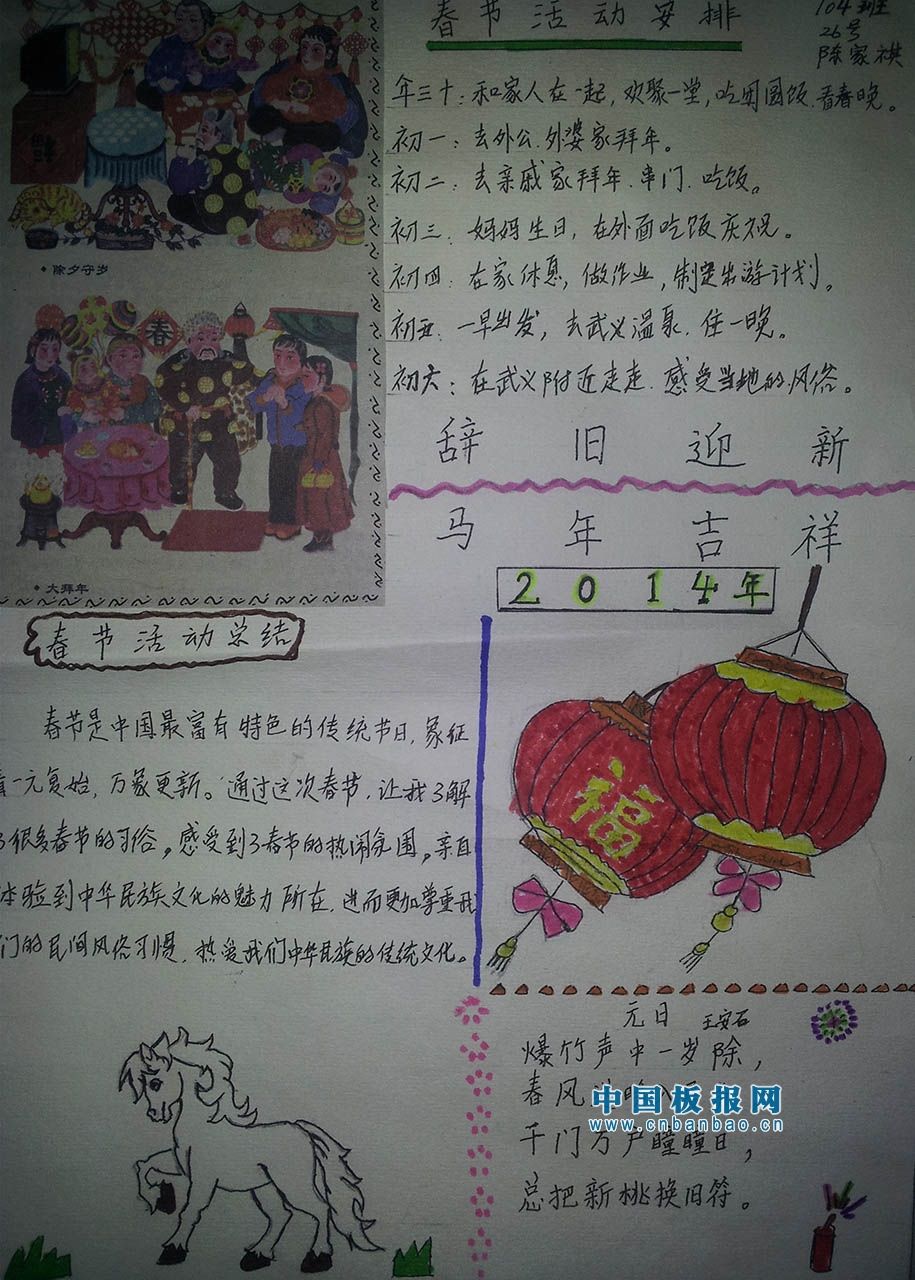 春节活动安排
104班
26号
陈家祺
年三十：和家人在一起，欢聚一堂，吃团圆饭.看春晚。
初一：去外公.外婆家拜年。
初二：去亲戚家拜年.串门.吃饭。
初三：妈妈生日，在外面吃饭庆祝。
初四：在家休息，做作业，制定出游计划。
初五：一早出发，去武义温泉.住一晚。
初六：在武义附近走走.感受当地的风俗。
春
除夕守岁
春
大拜年
辞旧迎新
马年吉祥
2014年
福
春节活动总结
春节是中国最富有特色的传统节日，象征
着一元复始，万象更新。通过这次春节，让我了解
了很多春节的习俗。感受到了春节的热闹氛围。亲自
体验到中华民族文化的魅力所在，进而更加尊重我
们的民间风俗习惯，热爱我们中华民族的传统文化。
元日 王安石
爆竹声中一岁除，
春风
千门万户瞳瞳日，
总把新桃换旧符。
中国板报网
www.cnbanbao.cn